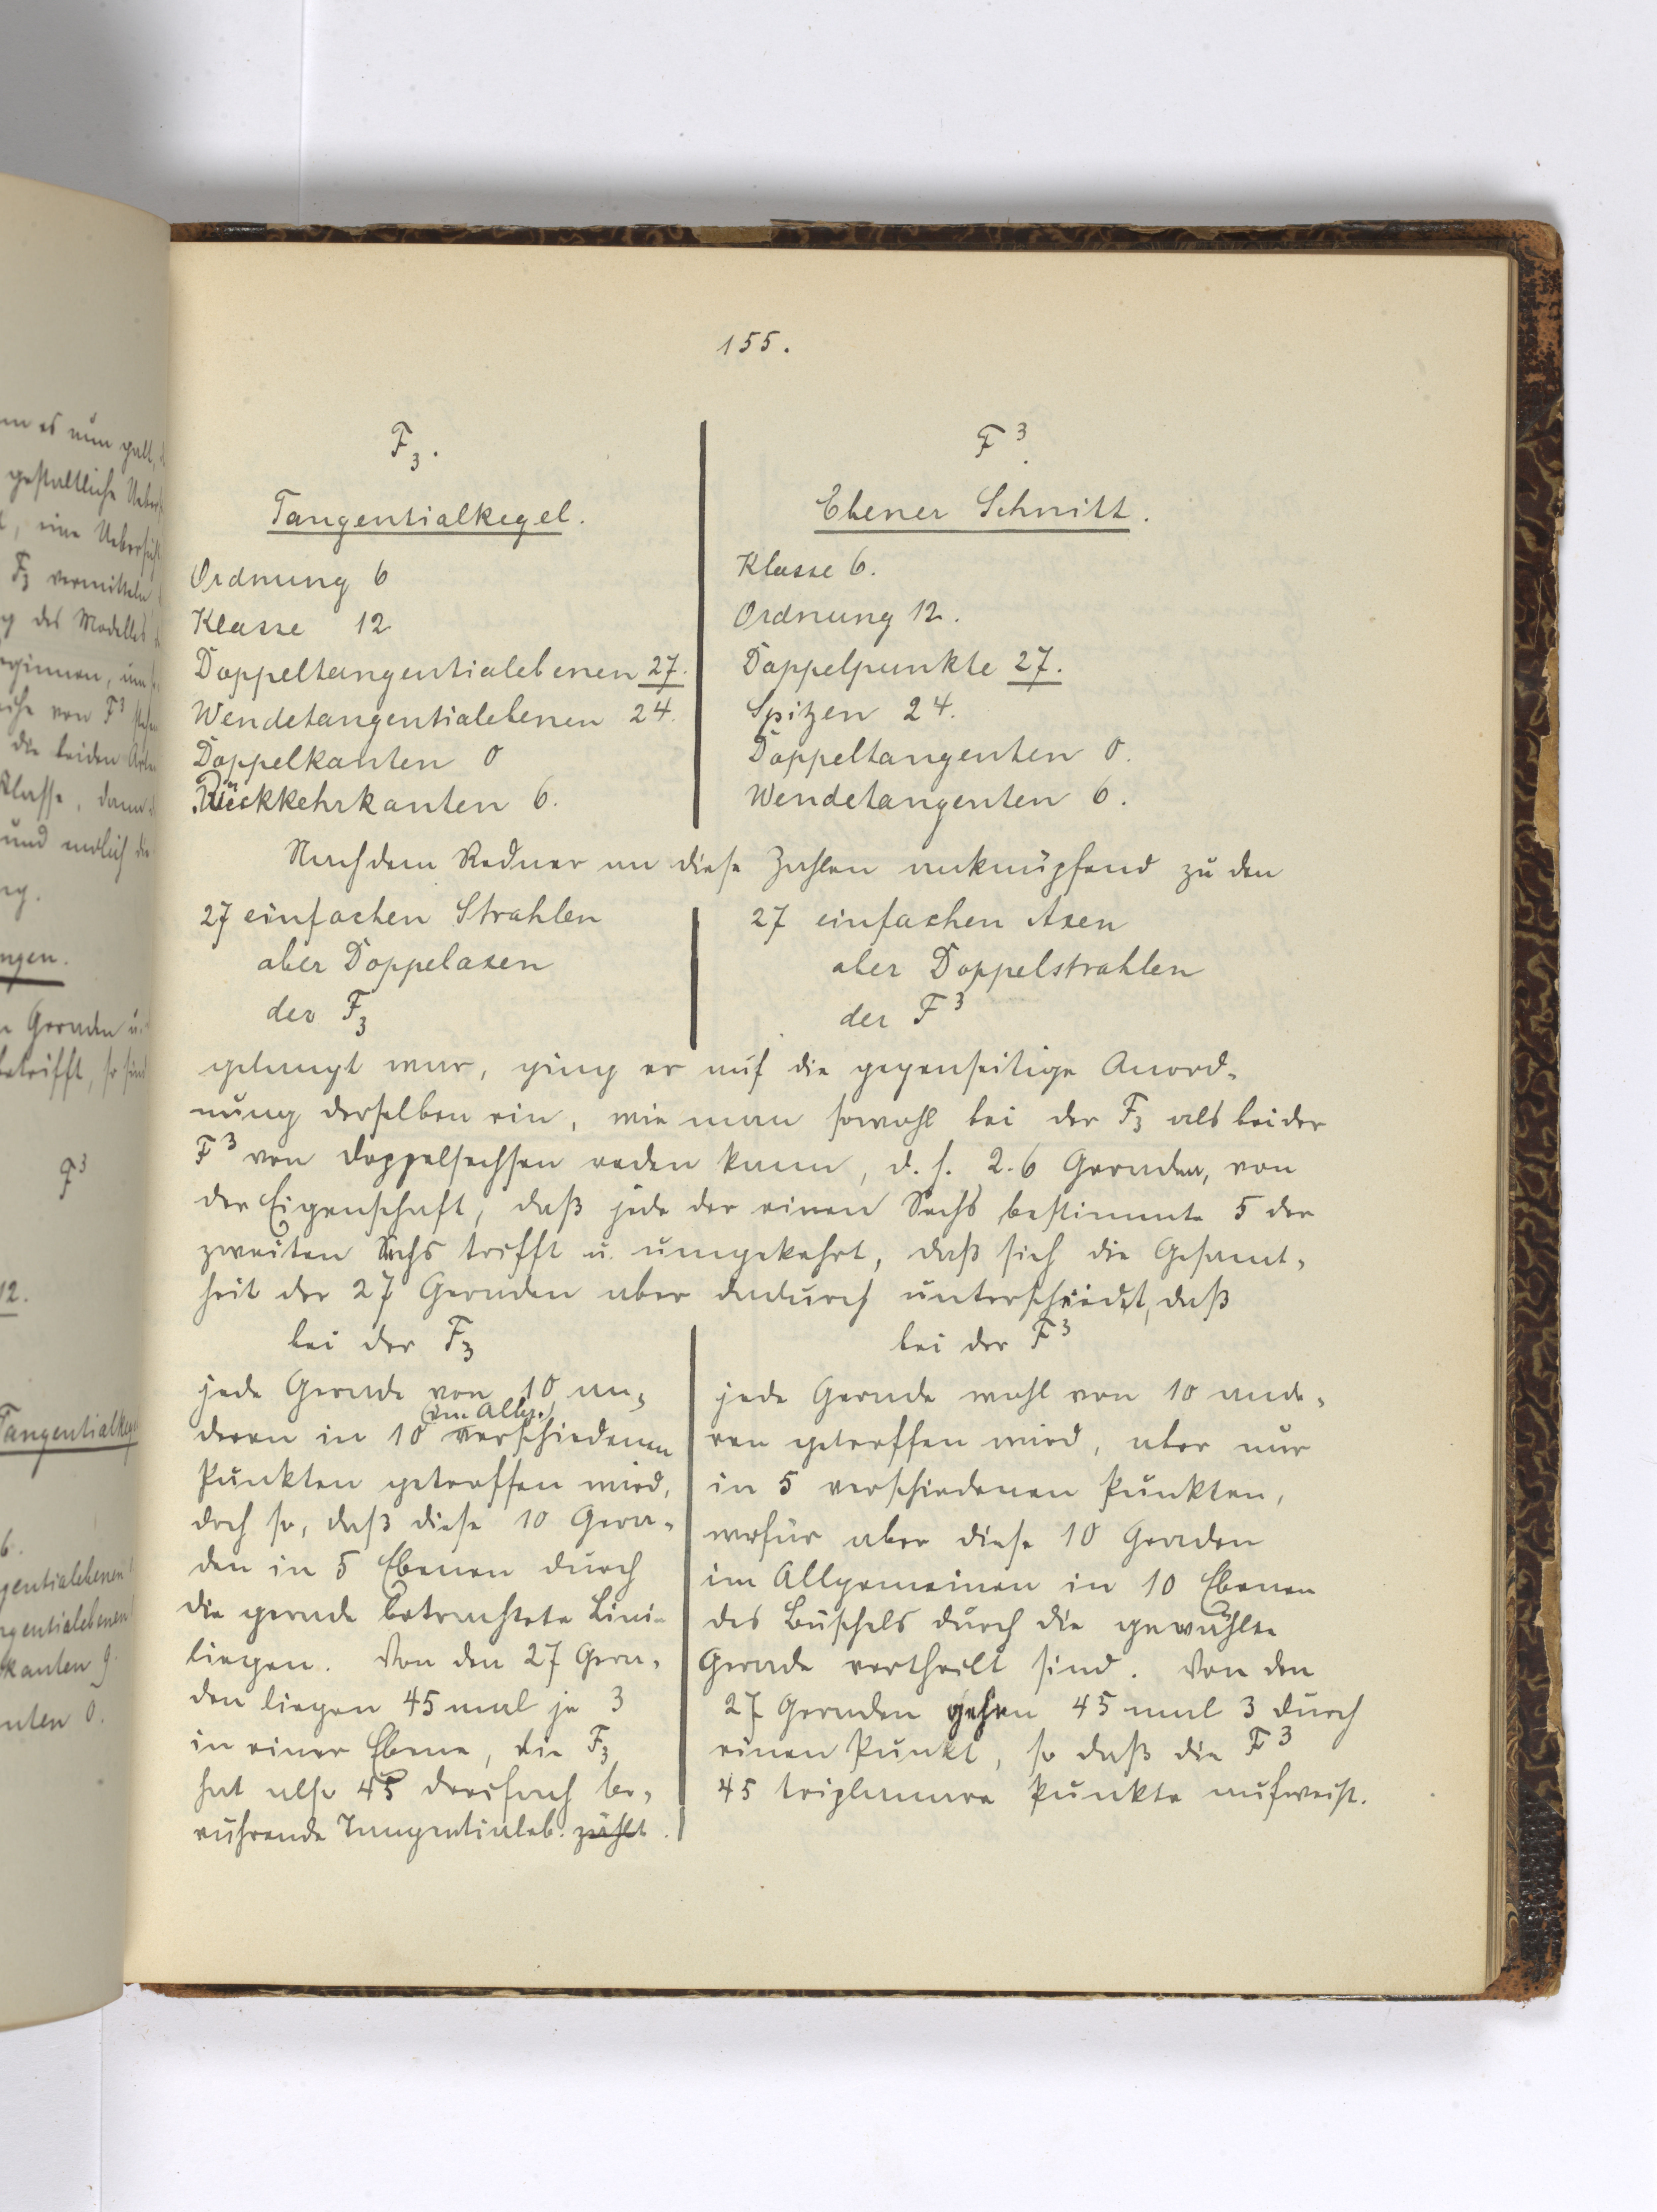 155.
F₃.
Tangentialkegel.
Ordnung 6
Klasse 12
Doppeltangentialebenen 27.
Wendetangentialebenen 24.
Doppelkanten 0
Rückkehrkanten 6.
F³.
Ebener Schnitt.
Klasse 6.
Ordnung 12.
Doppelpunkte 27.
Spitzen 24.
Doppeltangenten 0.
Wendetangenten 6.
Nachdem Redner an diese Zahlen anknüpfend zu den
27 einfachen Strahlen
aber Doppelaxen
der F₃
27 einfachen Axen
aber Doppelstrahlen
der F³
gelangt war, ging er auf die gegenseitige Anord-
nung derselben ein, wie man sowohl bei der F₃ als bei der
F³ von Doppelsechsen reden kann, d. h. 2.6 Geraden, von
der Eigenschaft, daß jede der einen Sechs bestimmte 5 der
zweiten Sechs trifft u. umgekehrt, daß sich die Gesamt-
heit der 27 Geraden aber dadurch unterscheidet, daß
bei der F₃
jede Gerade von 10 an-
deren in 10 (im Allg.) verschiedenen
Punkten getroffen wird,
doch so, daß diese 10 Gera-
den in 5 Ebenen durch
die gerade betrachtete Linie
liegen. Von den 27 Gera-
den liegen 45 mal je 3
in einer Ebene, die F₃
hat also 45 dreifach be-
rührende Tangentialeb. zählt.
bei der F³
jede Gerade wohl von 10 ande-
ren getroffen wird, aber nur
in 5 verschiedenen Punkten,
wofür aber diese 10 Geraden
im Allgemeinen in 10 Ebenen
des Büschels durch die gewählte
Gerade vertheilt sind. Von den
27 Geraden gehen 45 mal 3 durch
einen Punkt, so daß die F³
45 triplanare Punkte aufweist.